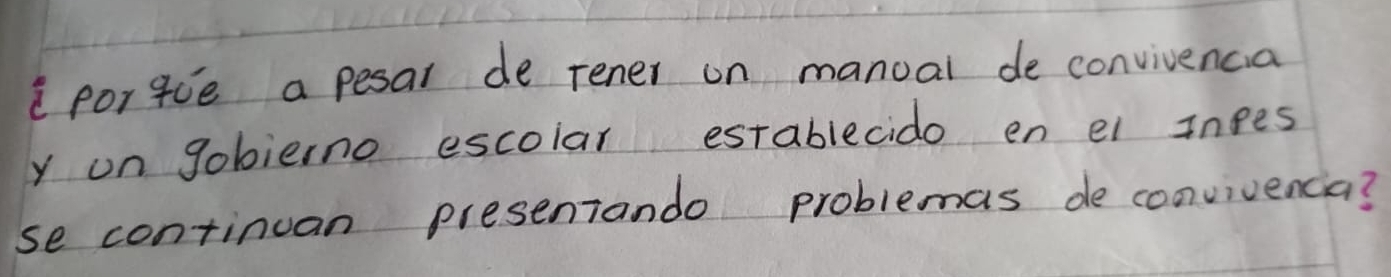 ¿por qúe a pesar de tener un manual de convivencia
y un gobierno escolar establecido en el Inpes
se continuan presentando problemas de convivencia?